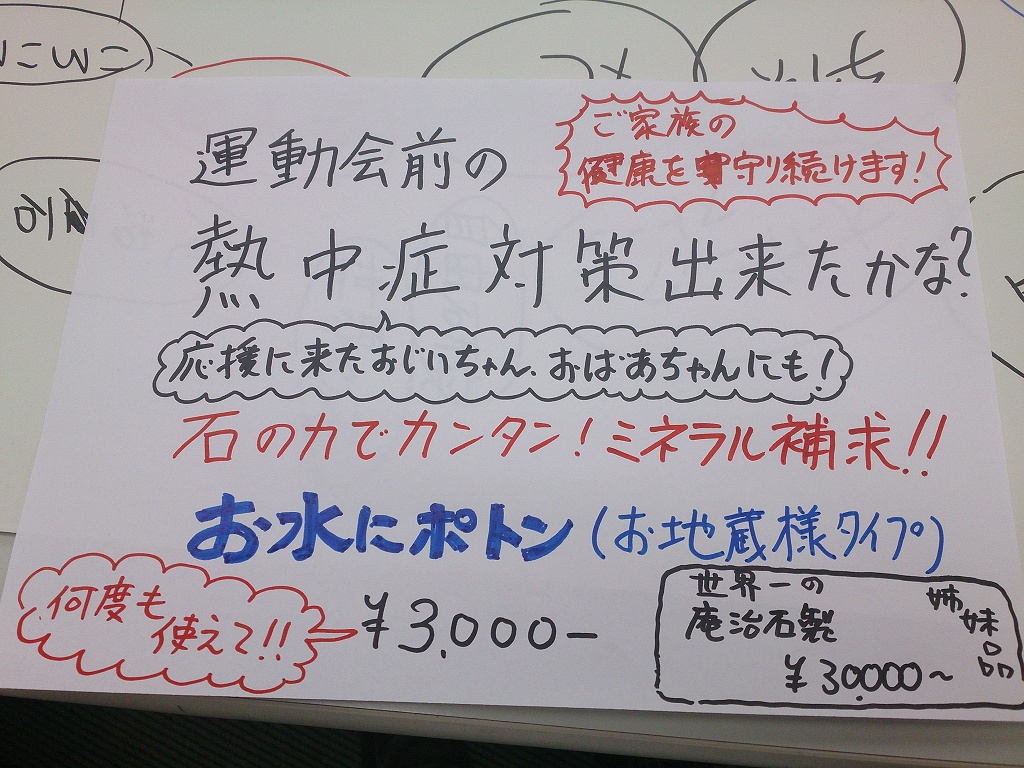 運動会前の
ご家族の
健康を守り続けます!
熱中症対策出来たかな?
応援に来たおじいちゃん、おばあちゃんにも!
石の力でカンタン!ミネラル補求!!
お水にポトン(お地蔵様タイプ)
何度も
使えて!!
¥3,000-
世界一の
庵治石製
¥30,000~
姉妹品